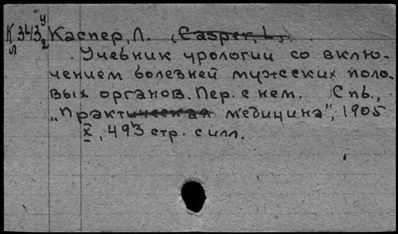 К 343 у/2 Каспер, Л. (Casper, L.)
л
Учебник урологии со вклю-
чением болезней мужских поло-
вых органов. Пер. с нем. Спб.,
„Практическая медицина", 1905
X, 493 стр. с илл.